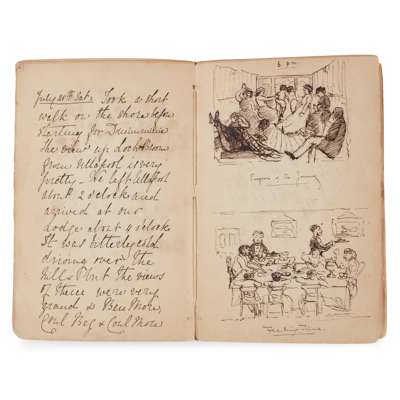 July 20th Sat: Took a short
walk on the shore before
starting for Drumrunie
The view up Loch Broom
from Ullapool is very
pretty - We left Ullapool
about 2 o'clock and
arrived at our
lodge about 4 o'clock
It was bitterly cold
driving over the
hills but the views
of these were very
grand & Ben More,
Coul Beg & Coul More
6 pm
Progress of the Journey
Feeding Time